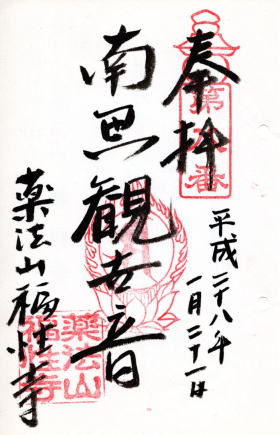 奉拝
平成二十八年
一月二十一日
南無観世音
薬法山福性寺
薬法山
福性寺